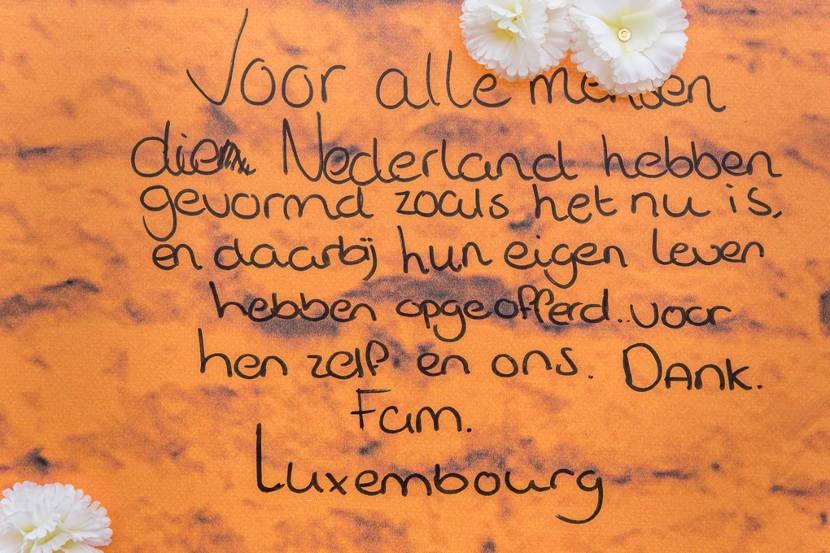 Voor alle mensen
die Nederland hebben
gevormd zoals het nu is,
en daarbij hun eigen leven
hebben opgeofferd..voor
hen zelf en ons. Dank.
Fam.
Luxembourg